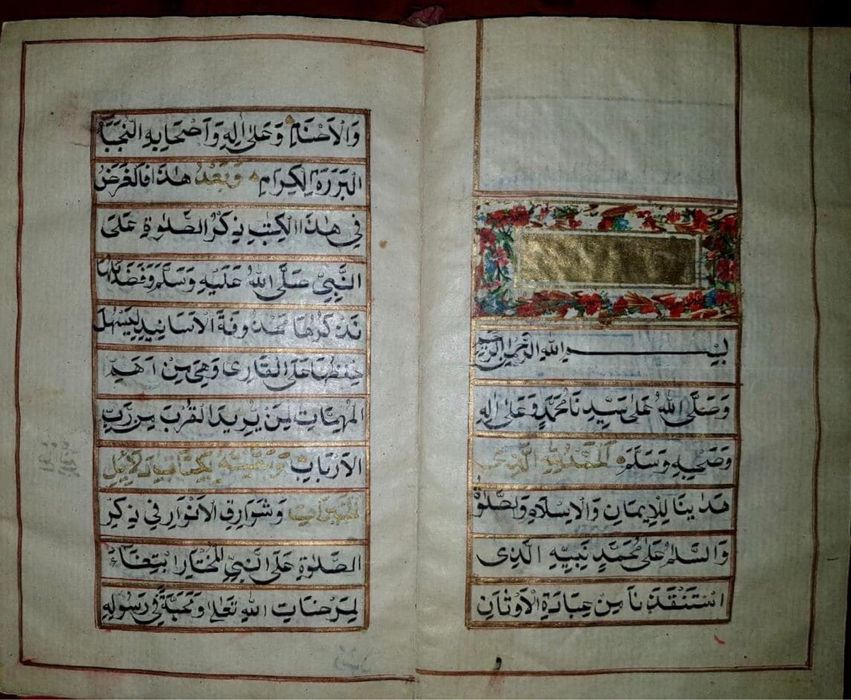 بسم الله الرحمن الرحيم
وَصَلَّى اللهُ عَلَى سَيِّدِنَا مُحَمَّدٍ وَعَلَى اٰلِهِ
وَصَحْبِهِ وَسَلَّمَ اَلْحَمْدُ لِلّٰهِ الَّذِى
هَدٰينَا لِلْاِيمَانِ وَالْاِسْلَامِ وَالصَّلٰوةُ
وَالسَّلٰمُ عَلٰى مُحَمَّدٍ نَبِيِّهِ الَّذِى
اسْتَنْقَذَنَا مِنْ عِبَادَةِ الْاَوْثَانِ
وَالْاَصْنَامِ وَعَلٰى اٰلِهِ وَاَصْحَابِهِ النُّجَبَاءِ
الْبَرَرَةِ الْكِرَامِ وَبَعْدُ هٰذَا فَالْغَرَضُ
فِى هٰذَا الْكِتٰبِ ذِكْرُ الصَّلٰوةِ عَلَى
النَّبِىِّ صَلَّى اللهُ عَلَيْهِ وَسَلَّمَ وَفَضَائِلِهَا
نَذْكُرُهَا مَحْذُوفَةَ الْاَسَانِيدِ لِيَسْهُلَ
حِفْظُهَا عَلَى الْقَارِى وَهِىَ مِنْ اَهَمِّ
الْمُهِمَّاتِ لِمَنْ يُرِيدُ الْقُرْبَ مِنْ رَبِّ
الْاَرْبَابِ وَسَمَّيْتُهُ بِكِتَابِ دَلَائِلِ
الْخَيْرَاتِ وَشَوَارِقِ الْاَنْوَارِ فِى ذِكْرِ
الصَّلٰوةِ عَلَى النَّبِىِّ الْمُخْتَارِ ابْتِغَاءً
لِمَرْضَاتِ اللهِ تَعَالٰى وَمَحَبَّةً فِى رَسُولِهِ